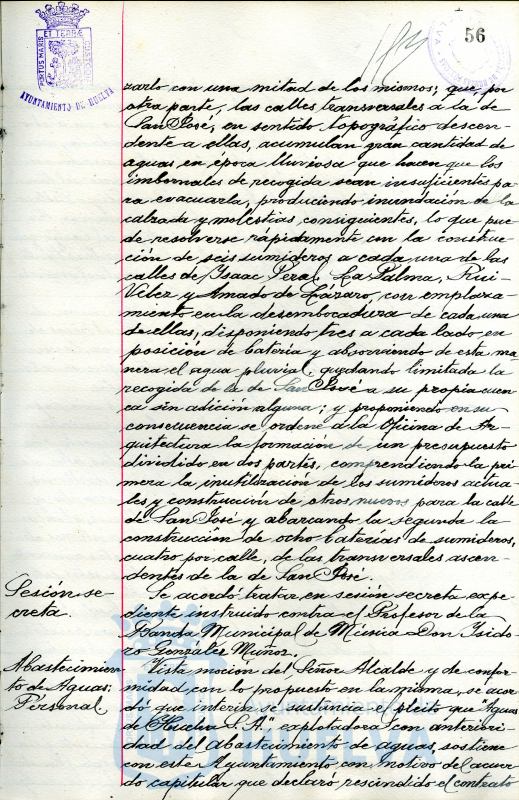 56
AYUNTAMIENTO DE HUELVA
zarlo con una mitad de los mismos; que, por
otra parte, las calles transversales á la de
San José, en sentido topográfico descen-
dente a ellas, acumulan gran cantidad de
aguas en época lluviosa que hacen que los
imbornales de recogida sean insuficientes pa-
ra evacuarla, produciendo inundación de la
calzada y molestias consiguientes, lo que pue-
de resolverse rápidamente con la construc-
ción de seis sumideros a cada una de las
calles de Isaac Peral, La Palma, Rui-
Velez y Amado de Lázaro, con emplaza-
miento en la desembocadura de cada una
de ellas, disponiendo tres a cada lado en
posición de batería y absorviendo de esta ma-
nera el agua pluvial, quedando limitada la
recogida de la de San José a su propia cuen-
ca sin adición alguna; y proponiendo en su
consecuencia se ordene á la Oficina de Ar-
quitectura la formación de un presupuesto
dividido en dos partes, comprendiendo la pri-
mera la inutilización de los sumideros actua-
les y construcción de otros nuevos para la calle
de San José y abarcando la segunda la
construcción de ocho baterias de sumideros,
cuatro por calle, de las transversales ascen-
dentes de la de San José.
Sesión se-
creta.
Se acordó tratar en sesión secreta expe-
diente instruido contra el Profesor de la
Banda Municipal de Música Don Isido-
ro Gonzalez Muñoz.
Abastecimien-
to de Aguas:
Personal.
Vista moción del Señor Alcalde y de confor-
midad con lo propuesto en la misma, se acor-
dó que interin se sustancia el pleito que "Aguas
de Huelva S. A." explotadora con anteriori-
dad del abastecimiento de aguas, sostiene
con este Ayuntamiento con motivo del acuer-
do capitular que declaró rescindido el contrato
HUELVA